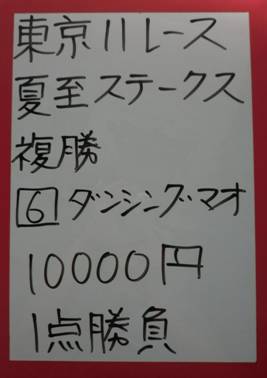 東京11レース
夏至ステークス
複勝
6 ダンシングマオ
10000円
1点勝負